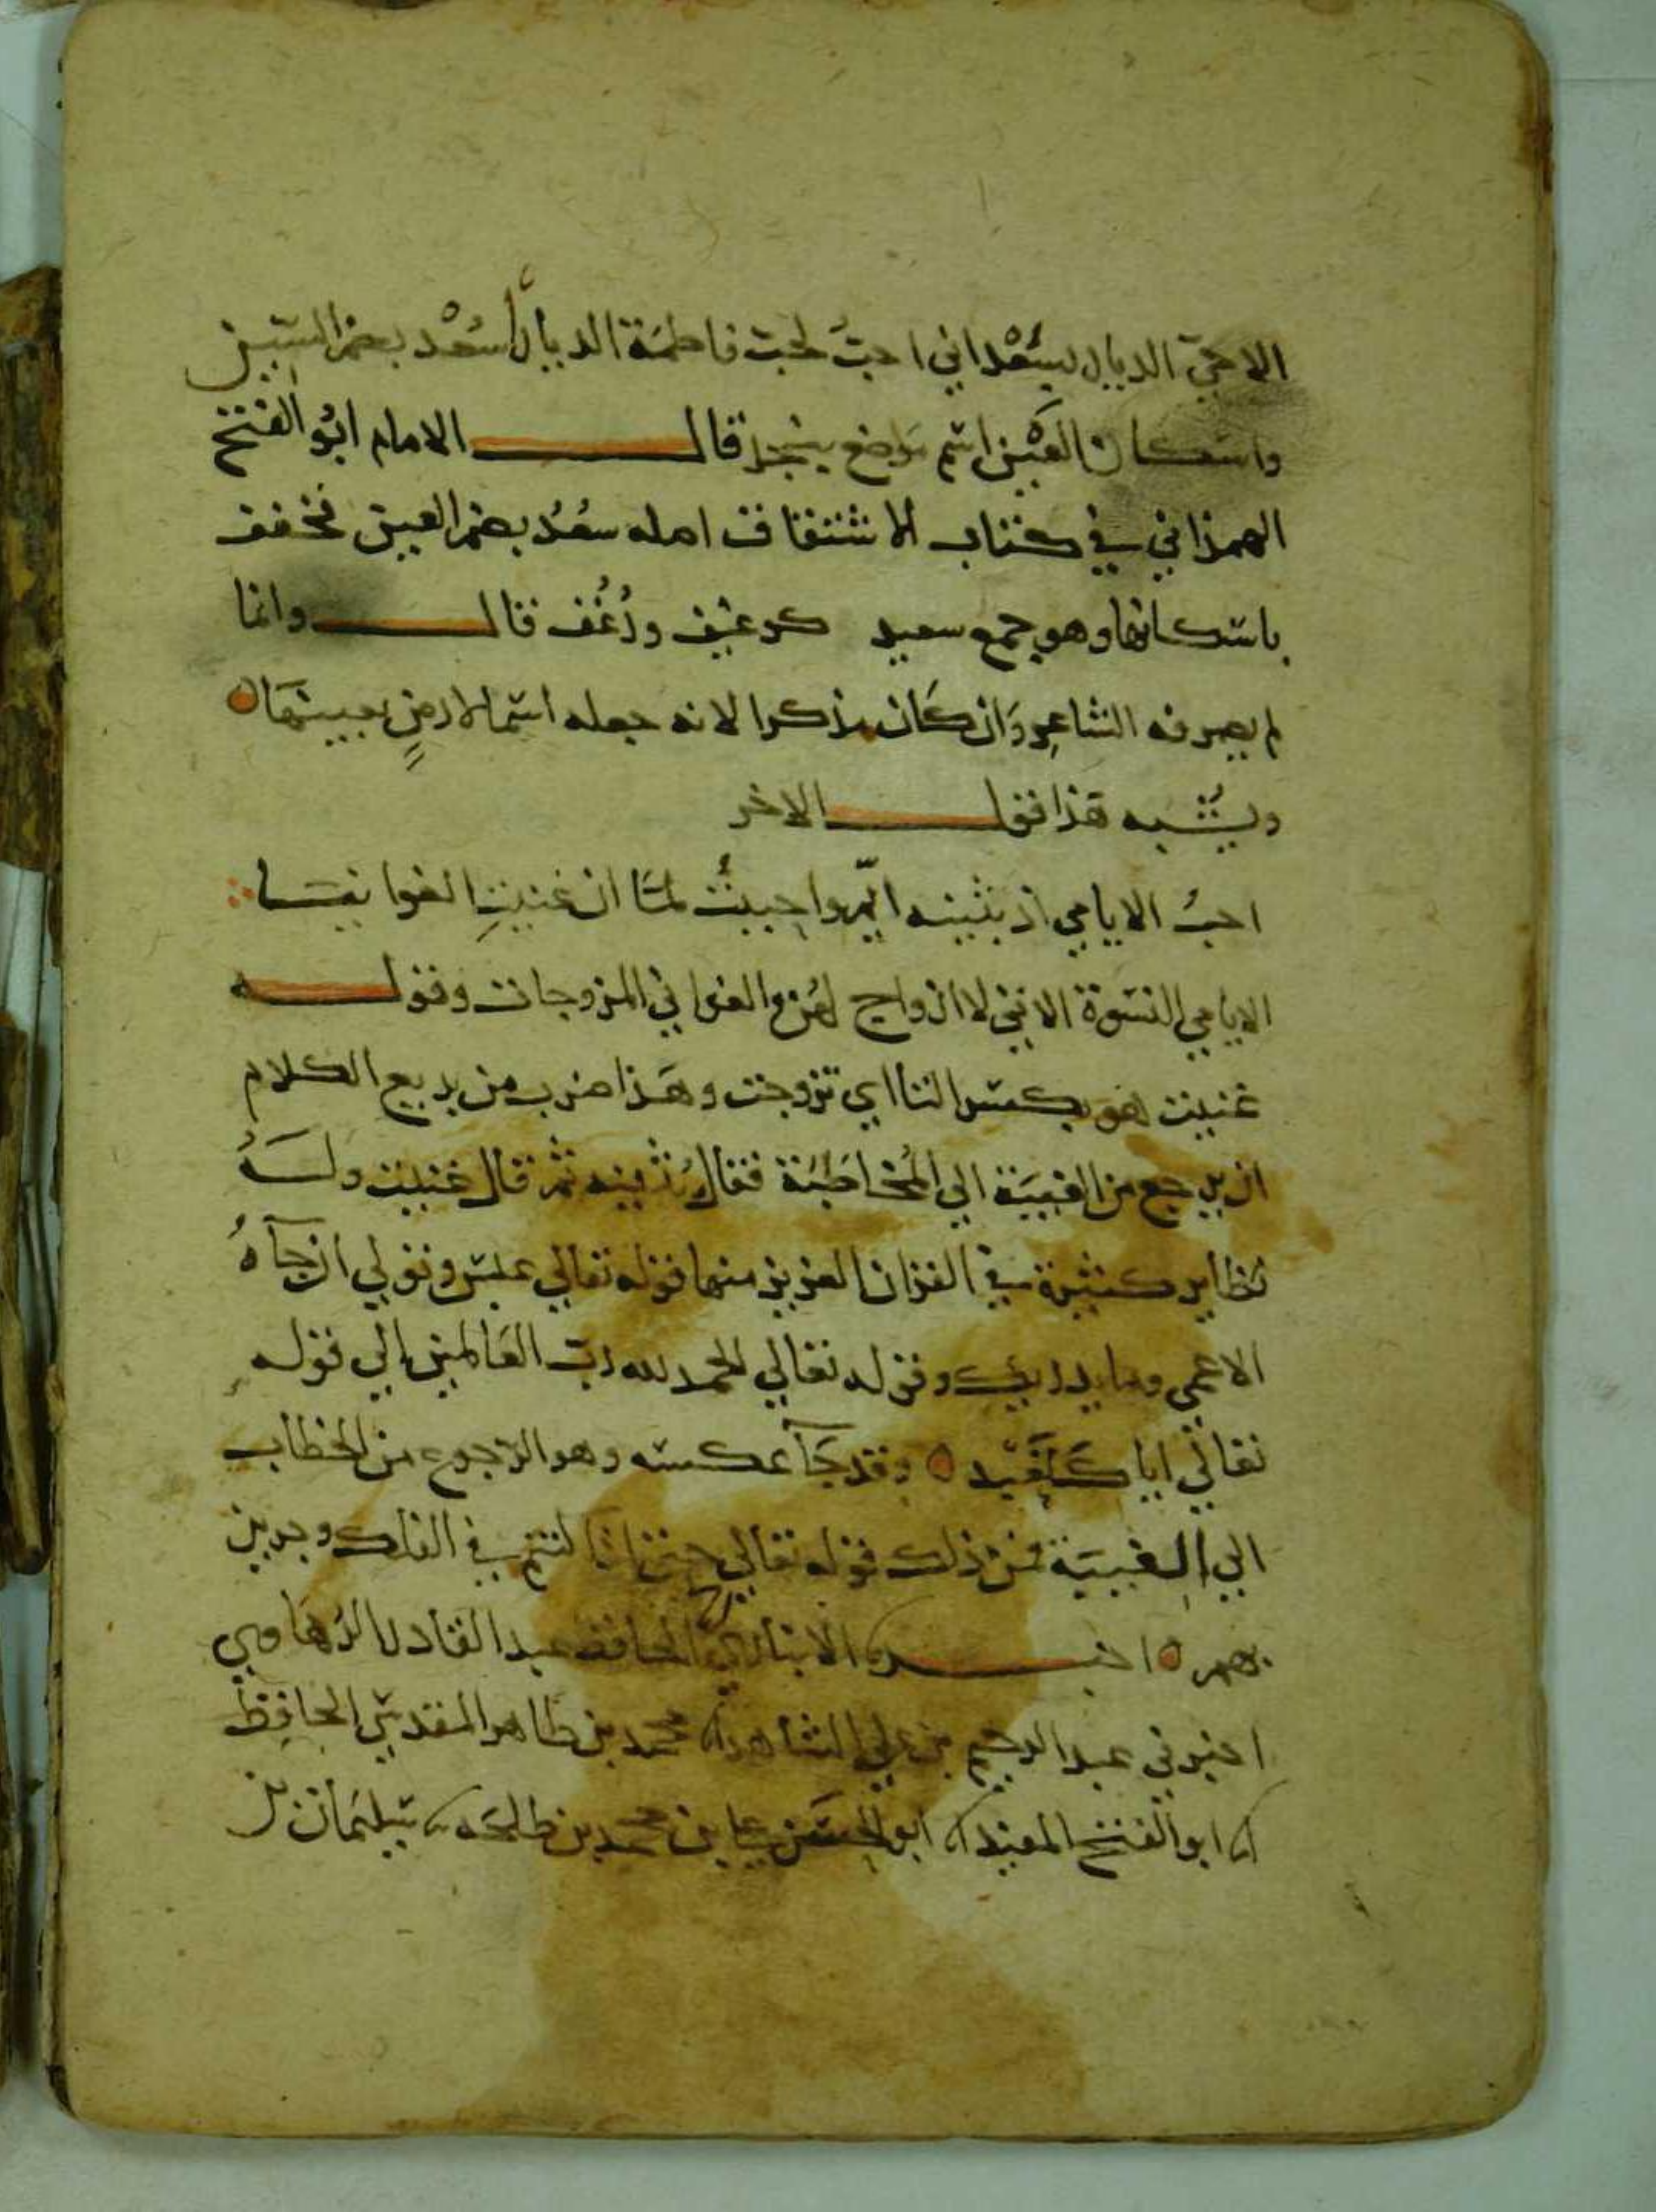 الا حي الديار بسُعْد اني احبّ لحب فاطمة الديارا سُعْد بضم السين
واسكان العين اسم موضع بنجد قال الامام ابو الفتح
الهمذاني في كتاب الاشتقاق اصله سُعُد بضم العين فخفف
باسكانها وهو جمع سعيد كرغيف ورُغُف قال وانما
لم يصرفه الشاعر وان كان مذكرا لانه جعله اسما لارضٍ بعينها ه
ويشبه هذا قول الاخر
احبُّ الايامي اذ بثينه ايّم واحببتُ لما ان غنيتِ الغوانيا ∴
الايامي النسوة الاتي لا ازواج لهن والغواني المزوجات وقوله
غنيت هو بكسر التا اي تزوجت وهذا ضرب من بديع الكلام
ان يرجع من الغيبة الي المُخاطبة فقال بُثينه ثم قال غنيت وله
نظاير كثيرة في القران العزيز منها قوله تعالي عبس وتولي ان جآه
الاعمي وما يدريك وقوله تعالي الحمد لله ربّ العالمين الي قوله
تعالي اياك نعبد ه وقد جآ عكسه وهو الرجوع من الخطاب
الي الغيبة فمن ذلك قوله تعالي حتي اذا كنتم في الفلك وجرين
بهم ه اخبرنا الانباري الحافظ عبد القادر الرُهاوي
اخبرني عبد الرحيم بن علي الشاهد انا محمد بن طاهر المقدسي الحافظ
انا ابو الفتح المفيد انا ابو الحسن علي بن محمد بن طلحه نا سليمان بن